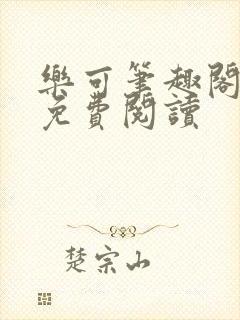 樂可筆趣閣
免費閱讀
楚宗山